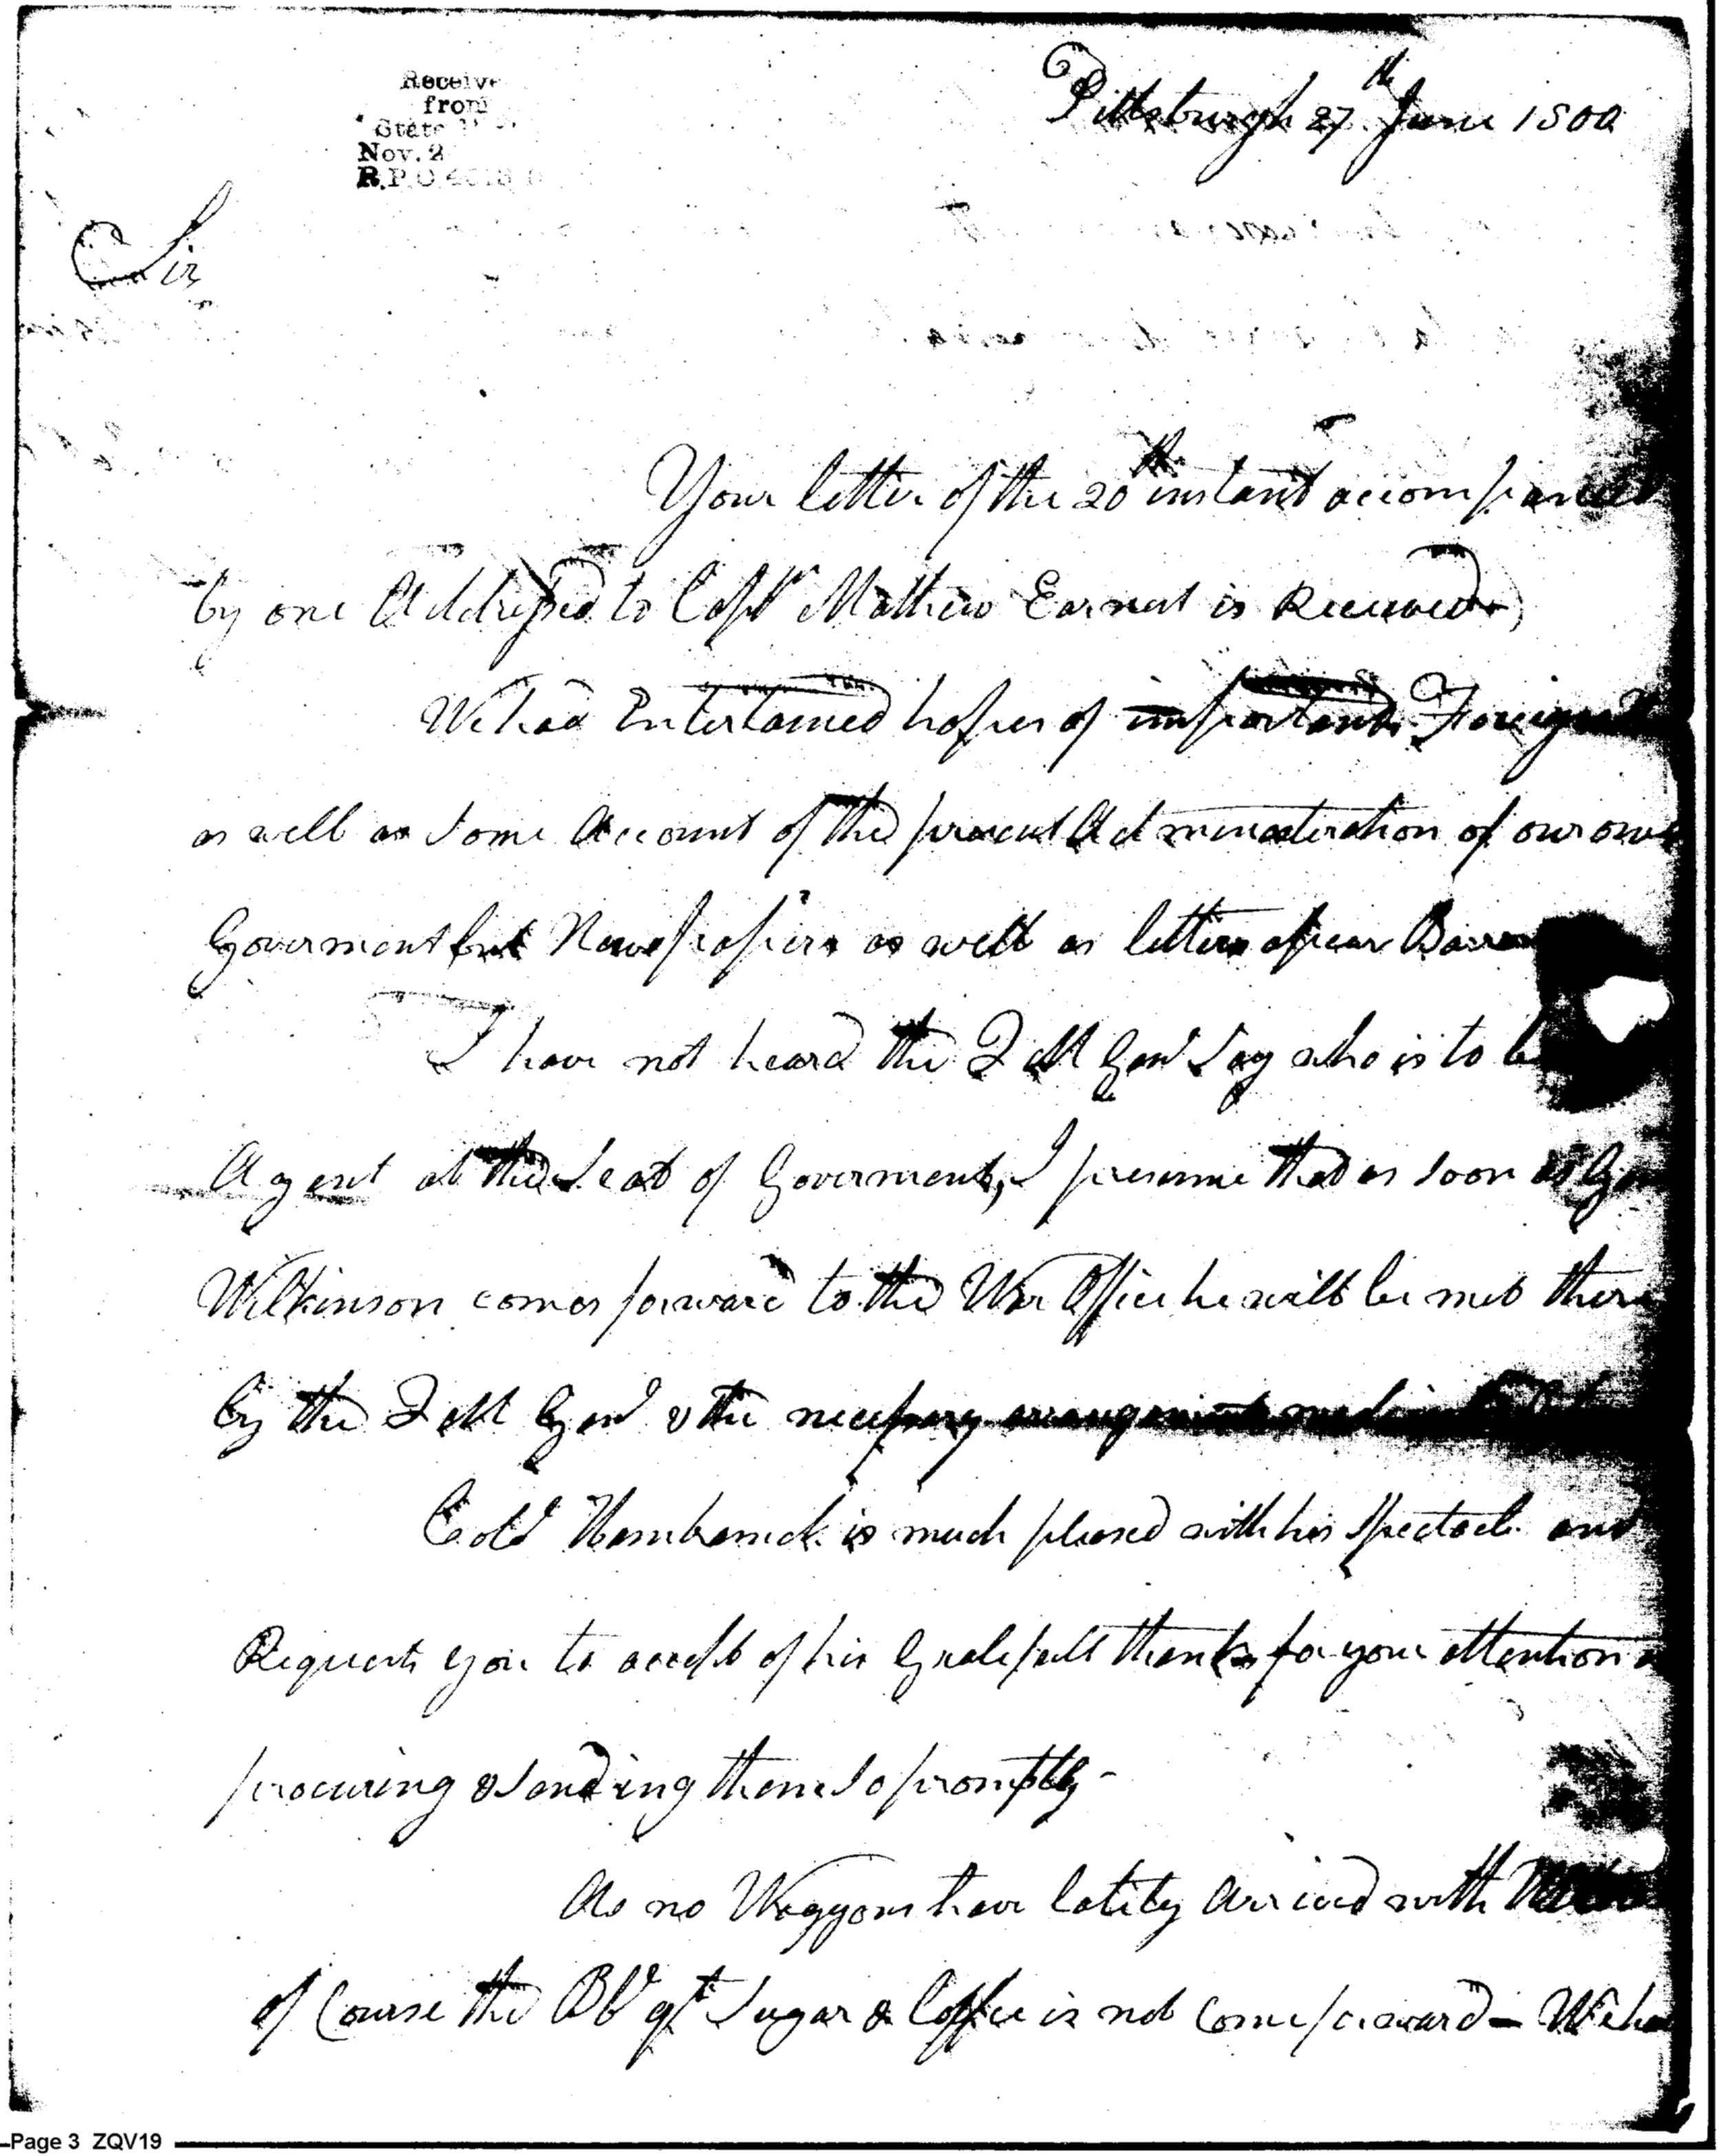 Receive
from
State
Nov. 2
R.P.O.
Pittsburgh 27th June 1800
Sir
Your letter of the 20th instant accompanied
by one Addressed to Capt Mathew Earnest is Received,
We had Entertained hopes of important Foreign
as well as Some Account of the present Administeration of our own
Goverment but Newspapers as well as letters apear Barren
I have not heard the Q M Genl Say who is to be
Agent at the Seat of Goverment, I presume that as soon as Gen
Wilkinson comes forward to the War Office he will be met there
by the Q M Genl & the necessary arrangements made
Colo Hamtramck is much pleased with his Spectacle and
Requests you to accept of his Gratefull thanks for your attention
procuring & Sending them So promptly -
As no Waggons have lately Arrived with
of Course the Bbl qt Sugar & Coffee is not Come forward - We have
Page 3 ZQV19